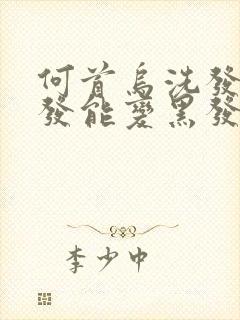 何首烏洗發
發能變黑發
李少中